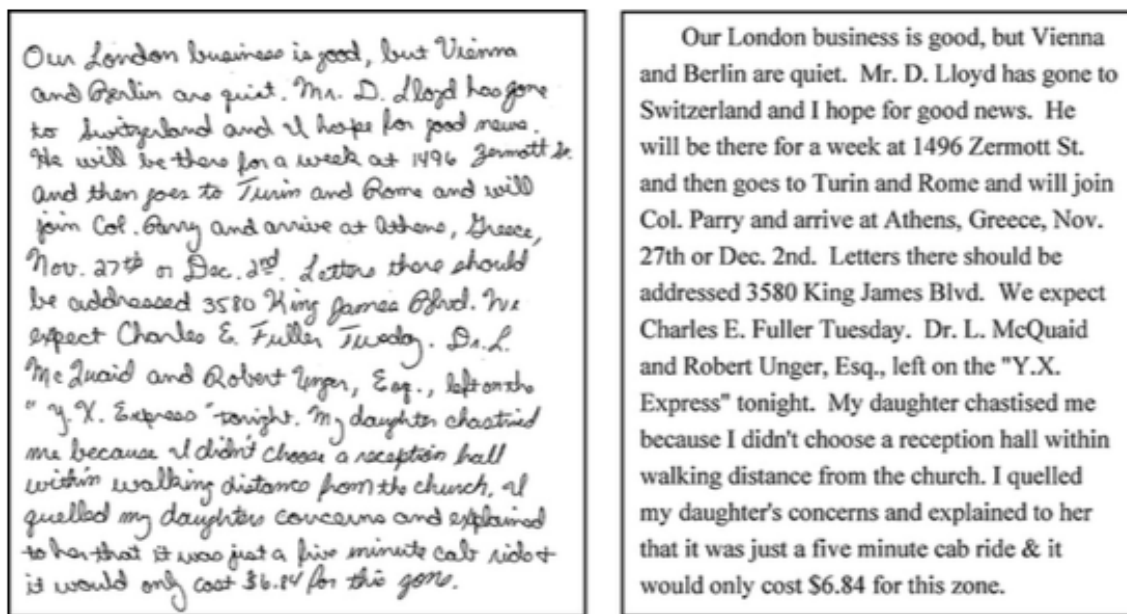 Our London business is good, but Vienna
and Berlin are quiet. Mr. D. Lloyd has gone
to Switzerland and I hope for good news.
He will be there for a week at 1496 Zermott St.
and then goes to Turin and Rome and will
join Col. Parry and arrive at Athens, Greece,
Nov. 27th or Dec. 2nd. Letters there should
be addressed 3580 King James Blvd. We
expect Charles E. Fuller Tuesday. Dr. L.
McQuaid and Robert Unger, Esq., left on the
"Y. X. Express" tonight. My daughter chastised
me because I didn't choose a reception hall
within walking distance from the church. I
quelled my daughters concerns and explained
to her that it was just a five minute cab ride &
it would only cost $6.84 for this zone.
Our London business is good, but Vienna
and Berlin are quiet. Mr. D. Lloyd has gone to
Switzerland and I hope for good news. He
will be there for a week at 1496 Zermott St.
and then goes to Turin and Rome and will join
Col. Parry and arrive at Athens, Greece, Nov.
27th or Dec. 2nd. Letters there should be
addressed 3580 King James Blvd. We expect
Charles E. Fuller Tuesday. Dr. L. McQuaid
and Robert Unger, Esq., left on the "Y.X.
Express" tonight. My daughter chastised me
because I didn't choose a reception hall within
walking distance from the church. I quelled
my daughter's concerns and explained to her
that it was just a five minute cab ride & it
would only cost $6.84 for this zone.